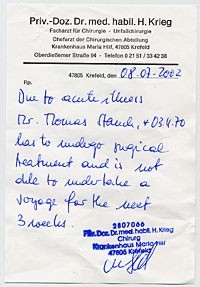 Priv.-Doz. Dr. med. habil. H. Krieg
Facharzt für Chirurgie - Unfallchirurgie
Chefarzt der Chirurgischen Abteilung
Krankenhaus Maria Hilf, 47805 Krefeld
Oberdießemer Str. 94 - Telefon 0 21 51 / 33 42 38
47805 Krefeld, den 08.07.2002
Due to acute illness
Mr. Thomas +03.4.70
has to undego surgical
treatment and is not
able to undertake a
voyage for the next
3 weeks.
2807066
Priv. Doz. Dr. med. habil. H. Krieg
Chirurg
Krankenhaus Maria Hilf
47805 Krefeld